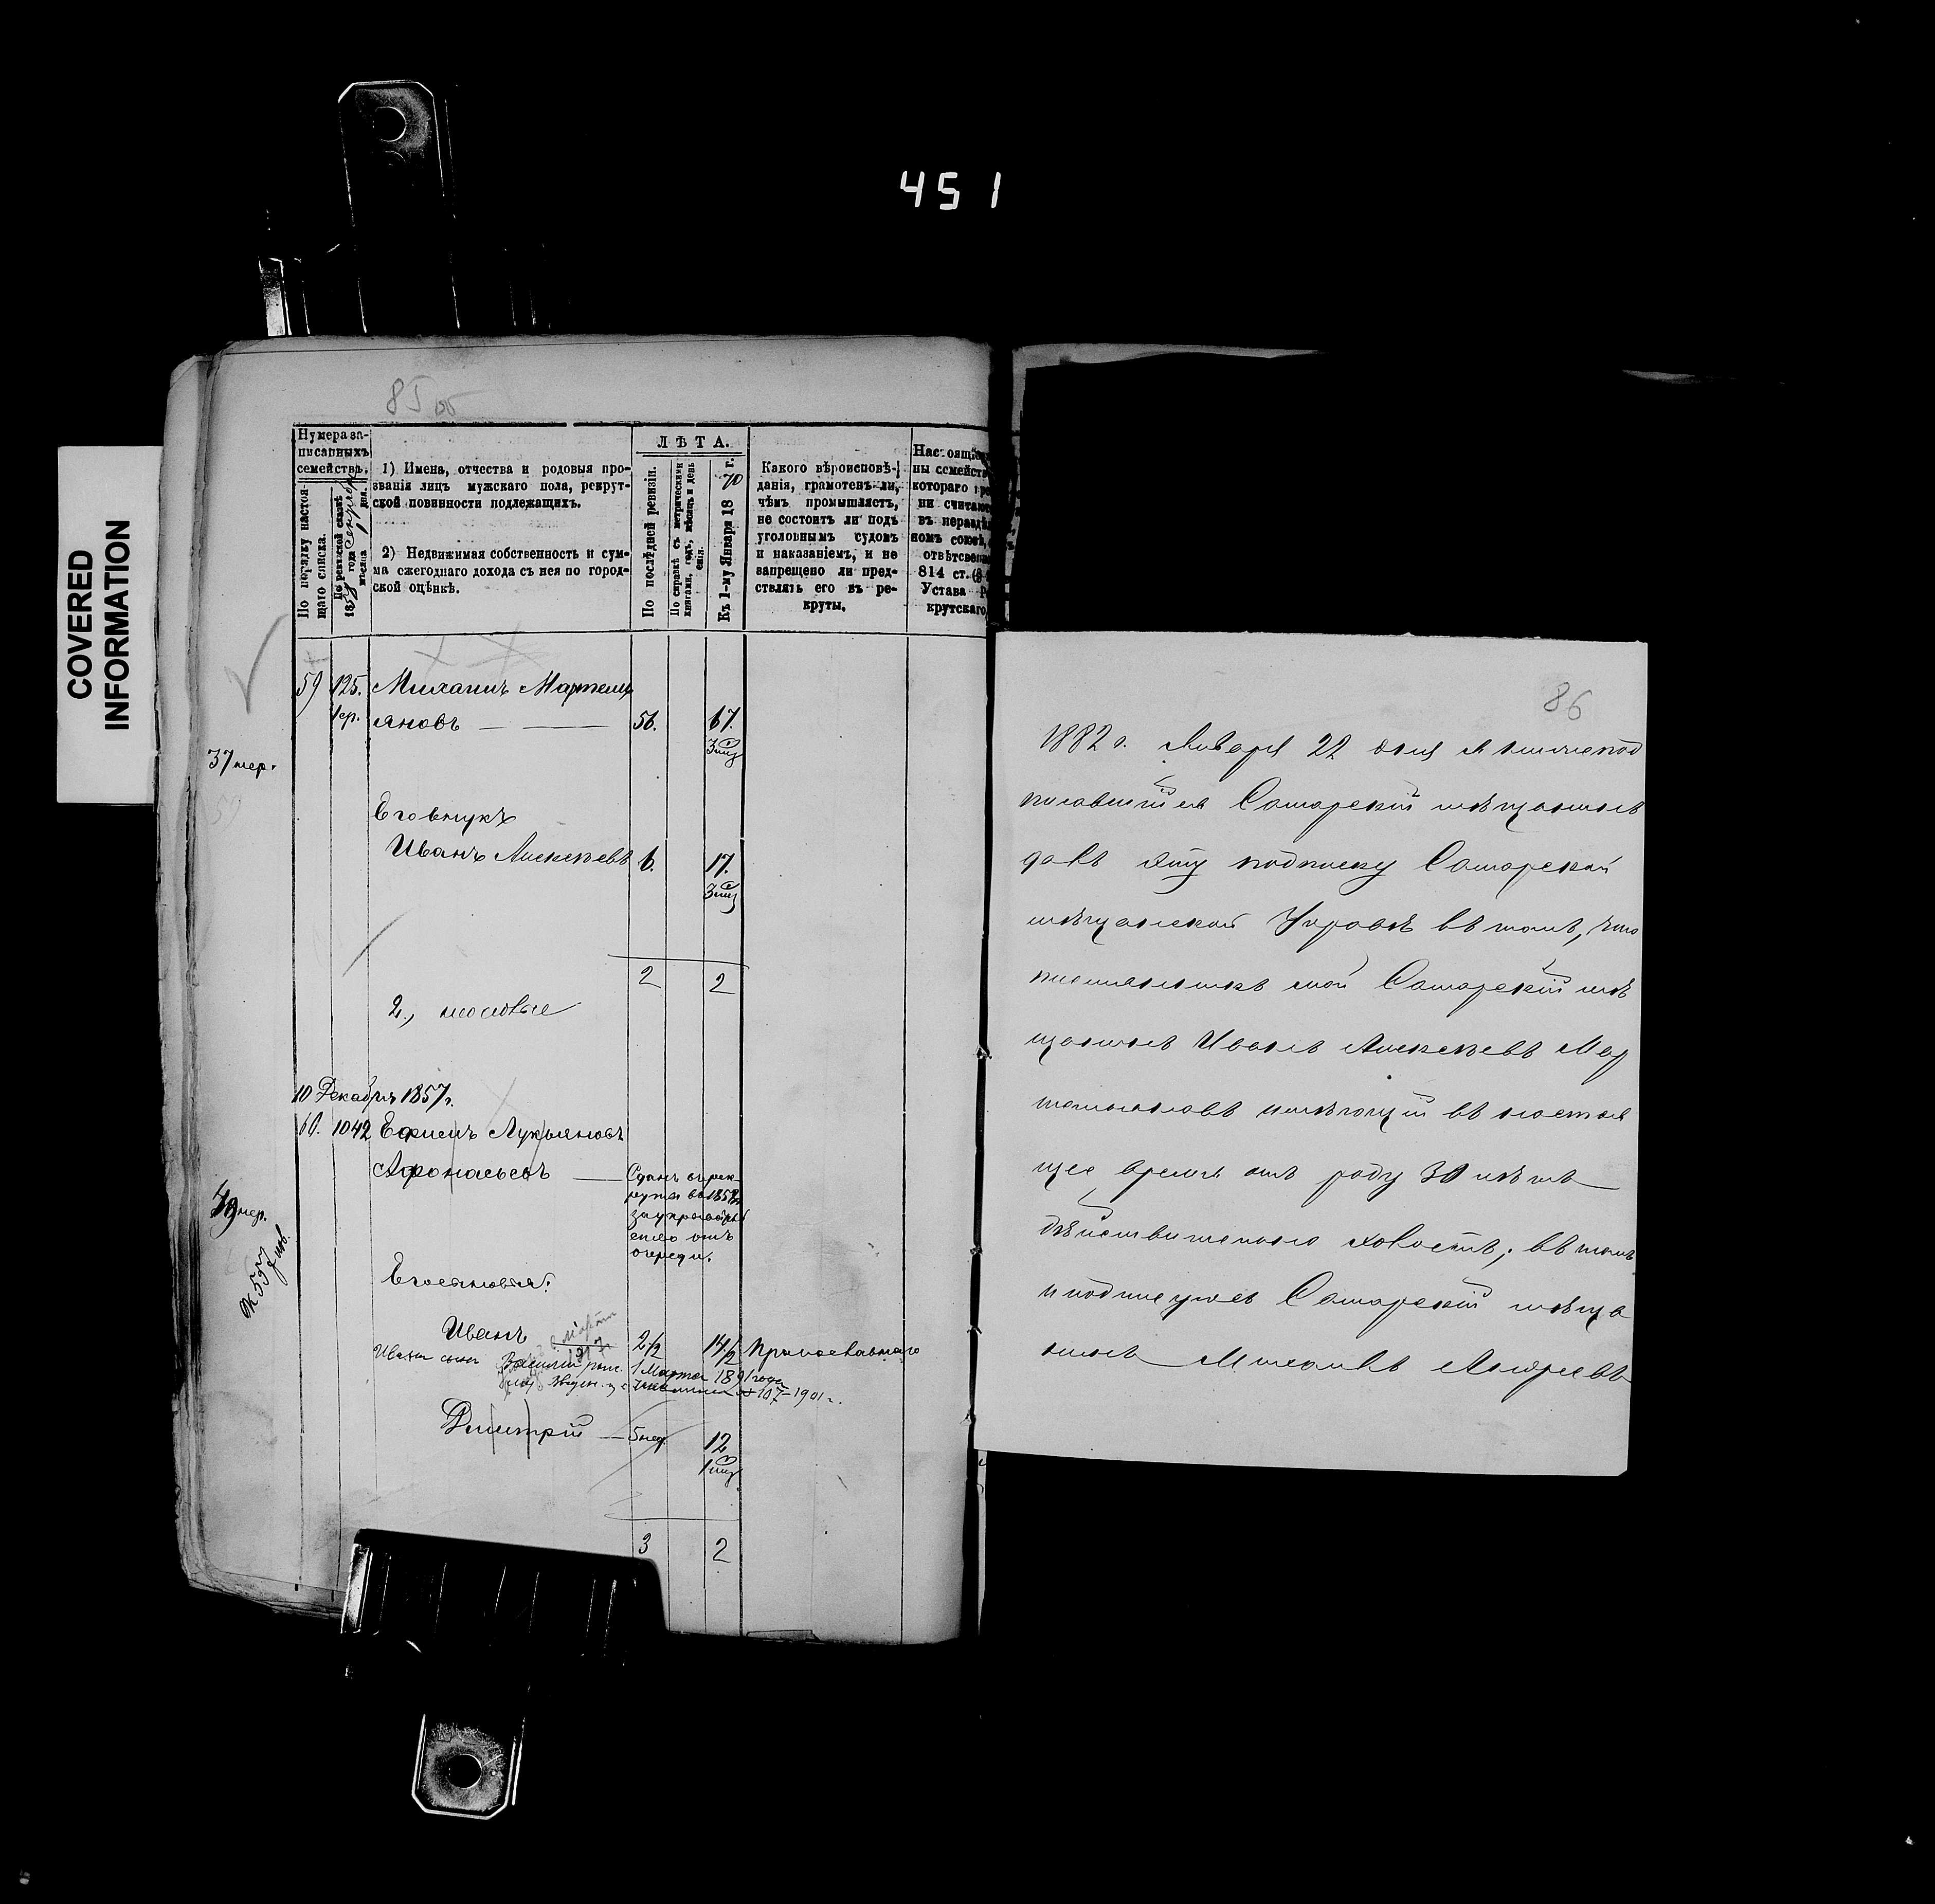 451
COVERED
INFORMATION
85 об
Нумера за-
писанныхъ
семействъ.
По порядку настоя-
щаго списка.
По ревизской сказкѣ
185 года
мѣсяца 1 дня.
1) Имена, отчества и родовыя про-
званія лицъ мужскаго пола, рекрут-
ской повинности подлежащихъ.
2) Недвижимая собственность и сум-
ма ежегоднаго дохода съ нея по город-
ской оцѣнкѣ.
ЛѢТА.
По послѣдней ревизіи.
По справкѣ съ метрическими
книгами, годъ, мѣсяцъ и день
Къ 1-му Января 1870 г.
Какого вѣроисповѣ-
данія, грамотенъ-ли,
чѣмъ промышляетъ,
не состоитъ ли подъ
уголовнымъ судомъ
и наказаніемъ, и не
запрещено ли пред-
ставлять его въ ре-
круты.
Настоящіе
ны семейств
котораго
ни считаю
въ нераздѣл
номъ союзѣ,
отвѣтствен
814 ст.
Устава Р
крутскаго.
59 125. Михаилъ Мартемь
1 ср. яновъ — 56. 67.
37 пер.
Его внукъ
Иванъ Алексѣевъ 6. 17.
2 2
10 Декабря 1857 г.
60. 1042 Ефимъ Лукьяновъ
Афонасьевъ — Сданъ въ рек-
руты въ 1858 г.
очереди.
Его сыновья:
Иванъ 2½ 14½ Православнаго
Ивана сынъ Василій рож. 1 Марта 1891 года
№ 107-1901 г.
Дмитрій — 5 нед. 12
3 2
86
1882 г. Января 22 дня я нижепод
писавшійся Самарскій мѣщанинъ
далъ сію подписку Самарской
мѣщанской Управѣ въ томъ, что
племянникъ мой Самарскій мѣ
щанинъ Иванъ Алексѣевъ Мар
темьяновъ имѣющій въ настоя
щее время отъ роду 30 лѣтъ
дѣйствительно холостъ; въ томъ
и подписуюсь Самарскій мѣща
нинъ Михаилъ Андреевъ